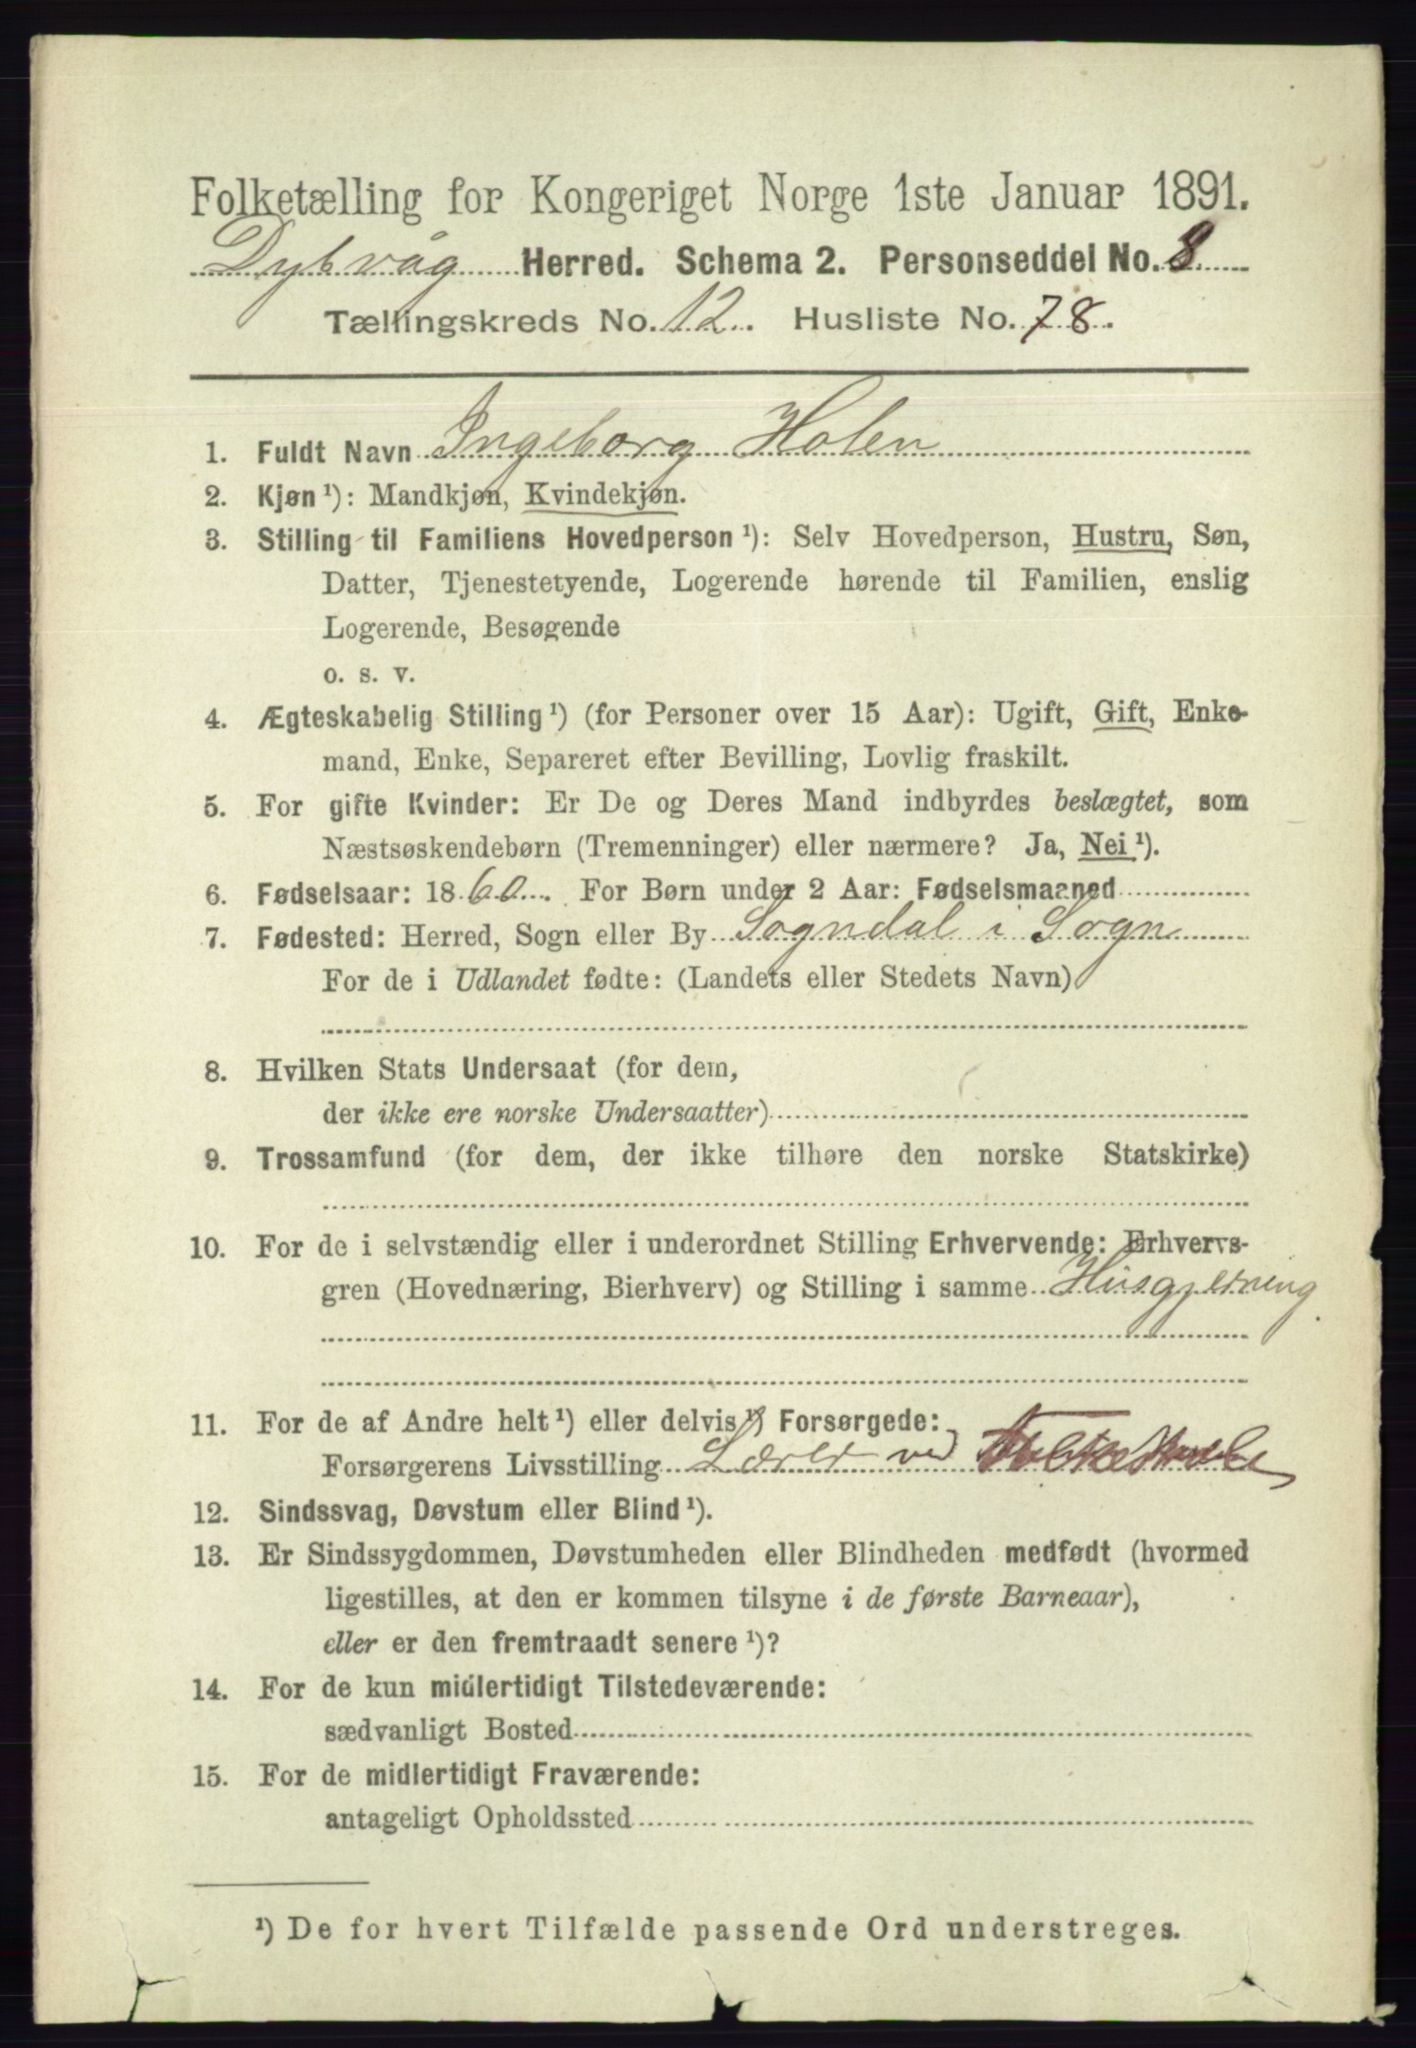 Folketælling for Kongeriget Norge 1ste Januar 1891.
Dybvåg Herred. Schema 2. Personseddel No. 8
Tællingskreds No. 12. Husliste No. 78.
1. Fuldt Navn Ingeborg Holen
2. Kjøn ¹): Mandkjøn, Kvindekjøn.
3. Stilling til Familiens Hovedperson ¹): Selv Hovedperson, Hustru, Søn,
Datter, Tjenestetyende, Logerende hørende til Familien, enslig
Logerende, Besøgende
o. s. v.
4. Ægteskabelig Stilling ¹) (for Personer over 15 Aar): Ugift, Gift, Enke-
mand, Enke, Separeret efter Bevilling, Lovlig fraskilt.
5. For gifte Kvinder: Er De og Deres Mand indbyrdes beslægtet, som
Næstsøskendebørn (Tremenninger) eller nærmere? Ja, Nei ¹).
6. Fødselsaar: 1860. For Børn under 2 Aar: Fødselsmaaned
7. Fødested: Herred, Sogn eller By Sogndal i Sogn
For de i Udlandet fødte: (Landets eller Stedets Navn)
8. Hvilken Stats Undersaat (for dem,
der ikke ere norske Undersaatter)
9. Trossamfund (for dem, der ikke tilhøre den norske Statskirke)
10. For de i selvstændig eller i underordnet Stilling Erhvervende: Erhvervs-
gren (Hovednæring, Bierhverv) og Stilling i samme Husgjerning.
11. For de af Andre helt ¹) eller delvis ¹) Forsørgede:
Forsørgerens Livsstilling Lærer ved
12. Sindssvag, Døvstum eller Blind ¹).
13. Er Sindssygdommen, Døvstumheden eller Blindheden medfødt (hvormed
ligestilles, at den er kommen tilsyne i de første Barneaar),
eller er den fremtraadt senere ¹)?
14. For de kun midlertidigt Tilstedeværende:
sædvanligt Bosted
15. For de midlertidigt Fraværende:
antageligt Opholdssted
¹) De for hvert Tilfælde passende Ord understreges.